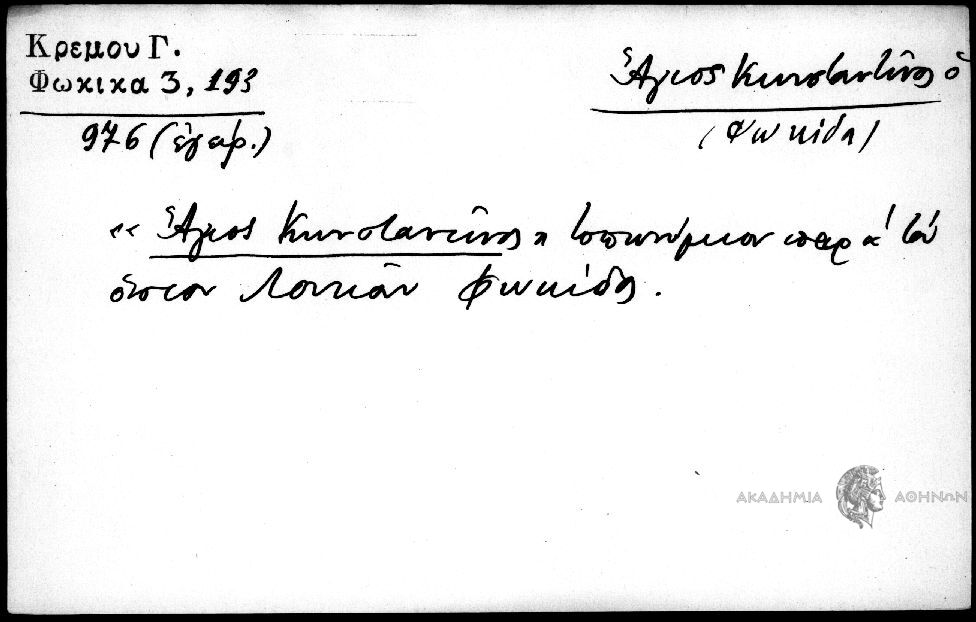 Κρεμου Γ.
Φωκικα 3, 193
976 (ἔγγρ.)
Ἅγιος Κωνσταντῖνος ὁ
(Φωκίδα)
«Ἅγιος Κωνσταντῖνος» τοπωνύμιον παρὰ τὸν
ὅσιον Λουκᾶν Φωκίδος.
ΑΚΑΔΗΜΙΑ ΑΘΗΝΩΝ